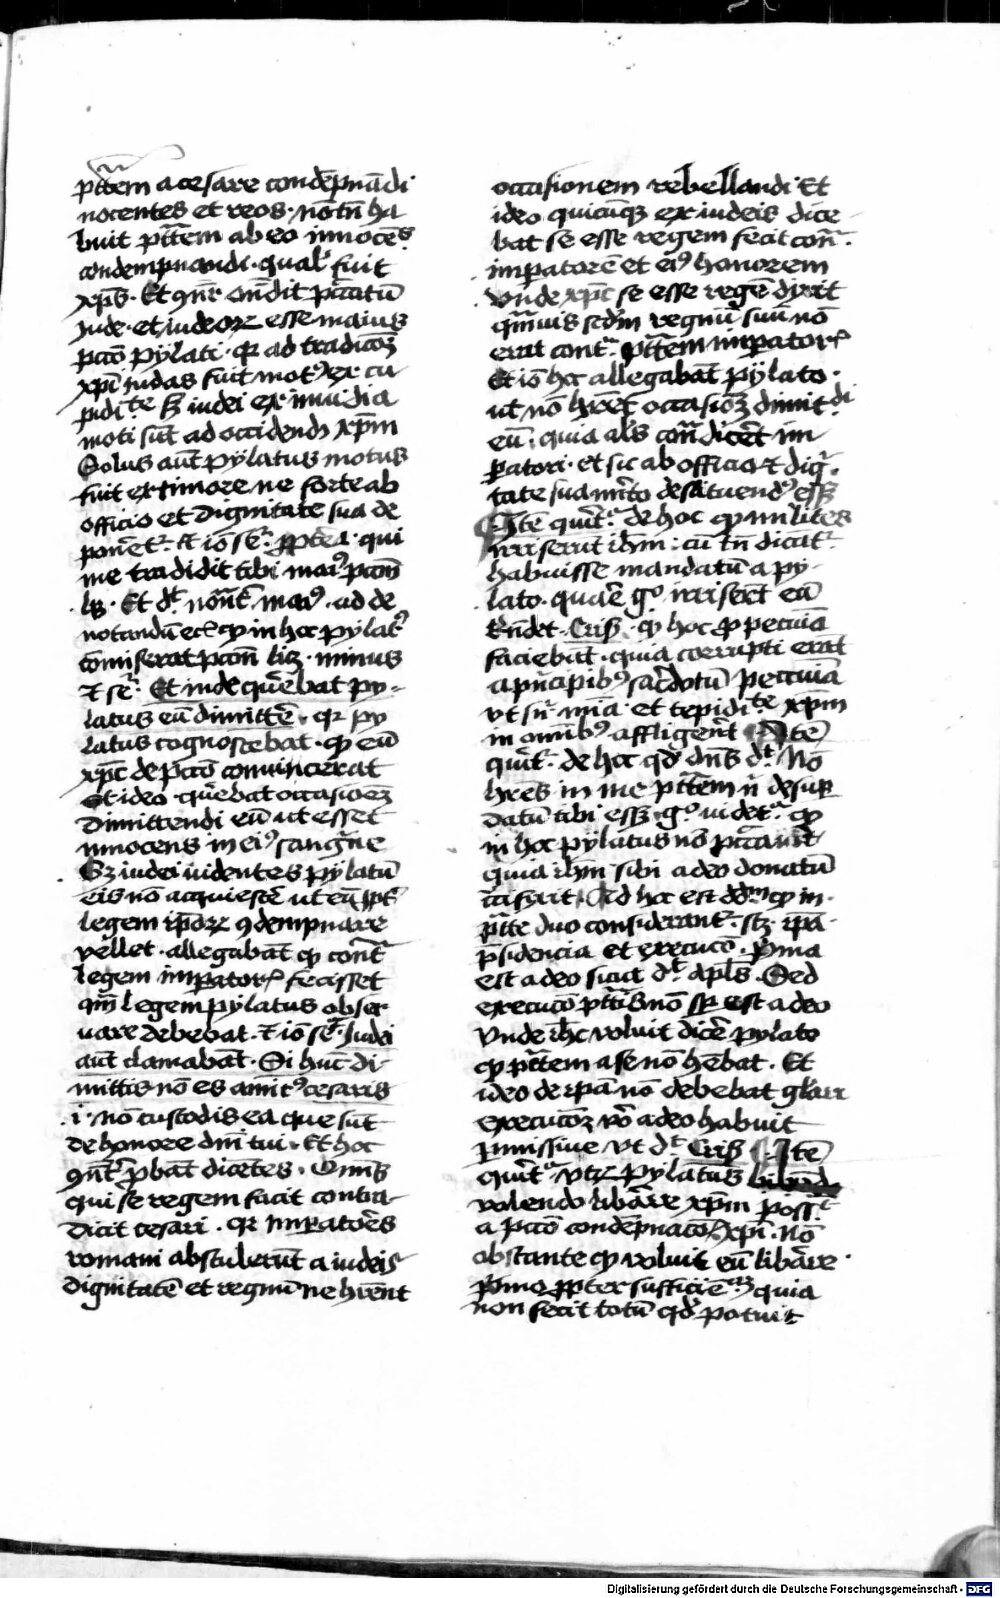 ptt̄em a cesare condēpnādi
nocentes et reos · nō tn̄ ha
buit ptt̄em ab eo innocēs
condempnandi · qual' fuit
xp̄s · Et ꝯn̄r on̄dit pctātū
Jude · et iudeoꝝ esse maius
pctō pylati · qꝛ ad tradicōꝫ
xp̄i iudas fuit motꝰ ex cu
pidite sꝫ iudei ex inuidia
moti sūt ad occidendū xp̄m
Solus aūt pylatus motus
fuit ex timore ne forte ab
officio et dignitate sua de
ponēet᷑ · et iō se᷑ · ꝓpterea · qui
me tradidit tibi maiꝰ pctm̄
hꝫ · Et dt̄ nōnt̄ maiꝰ · ad de
notandū ecꝫ ꝙ in hoc pylatꝰ
cōmiserat pctm̄ licꝫ · minus
et se᷑ · Et inde quērebat py-
latus eū dimittēre · qꝛ py
latus cognoscebat · ꝙ eū
xp̄c de pctō conuincerat
Et ideo · quērebat occasionēꝫ
dimittendi eū ut esset
innocens in eiꝰ sanguīe
Sꝫ iudei uidentes pylatū
eis nō acquiescē ut eū ꝓpt̄
legem ip̄oꝝ ꝯdempnare
vellet · allegabāt ꝙ cont̄
legem imꝑatorꝭ fecisset
qm̄ legem pylatus obser
uare debebat · et iō se᷑ · Judei
aūt clamabāt · Si hūc di
mittis nō es amicꝰ cesaris
· i · nō custodis ea que sūt
de honore dn̄i tui · Et hoc
ꝯn̄t᷑ ꝓbāt dicētes · Omīs
qui se regem facit contra-
dicit cesari · qꝛ Imꝑatoēs
romani abstulerūt a iudeis
dignitatē et regnū ne hr̄ent
occasionem rebellandi · Et
ideo quicūqꝫ ex iudeis dice
bat se esse regem fecit conᷓ
imꝑatorē et eiꝰ honorem
Vnde xp̄c se esse regē dixit
quāuis scd̄m regnū suū nō
erat contᷓ ptt̄em imꝑatorꝭ
Et iō hoc allegabāt pylato ·
ut nō hr̄et occasionēꝫ dimittdi
eū · quia al's conᷓ dicēet im
ꝑatori · et sic ab officio et dig᷑
tate sua mīto destituendꝰ esseꝫ
Itē querit᷑ de hoc ꝙ milites
irriserūt ih̄m : cū tn̄ dicāt᷑
habuisse mandatū a py-
lato · quare gͦ irriserūt eū
Rn̄det Cris̄ · ꝙ hoc ꝓ pecuīa
faciebāt · quia corrupti erāt
a pn̄cipibꝰ sac̄dotū pecuniā
vt sn̄ mīa · et tepidite xp̄m
in omībꝰ affligerēt Itē
querit᷑ · de hoc qd̄ dn̄s dt̄ Nō
hr̄es in me ptt̄em n̄ desup̄
datū tibi esseꝫ · gͦ uidet᷑ ꝙ
in hoc pylatus nō peccauit
quia ih̄m sibi a deo donatū
Ad hoc est dd̄m ꝙ in ·
ptt̄e duo considerant᷑ · scꝫ ip̄a
p̄sidencia et execucō · Prima
est a deo sicut dt̄ apl̄s · Sed
execucō ptt̄is nō sꝑ est a deo
Vnde ih̄c voluit dicēre pylato
ꝙ ptt̄em a se nō hēbat · Et
ideo de ip̄a nō debebat gloriari
execucōꝫ vͦ a deo habuit
ꝑmissiue vt dt̄ Cris̄ Itē
querit᷑ vtrꝫ pylatus
volendo libāre xp̄m possꝫ
a pctō condēpnacōīs xp̄i · Nō
obstante ꝙ voluit eū libāre ·
Primo ꝓpter sufficiēciaꝫ quia
non fecit totū qd̄ potuit
Digitalisierung gefördert durch die Deutsche Forschungsgemeinschaft - DFG